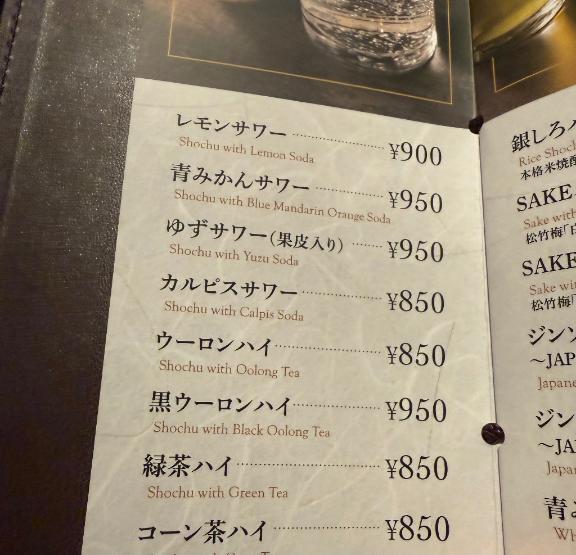 レモンサワー ¥900
Shochu with Lemon Soda
青みかんサワー ¥950
Shochu with Blue Mandarin Orange Soda
ゆずサワー(果皮入り) ¥950
Shochu with Yuzu Soda
カルピスサワー ¥850
Shochu with Calpis Soda
ウーロンハイ ¥850
Shochu with Oolong Tea
黒ウーロンハイ ¥950
Shochu with Black Oolong Tea
緑茶ハイ ¥850
Shochu with Green Tea
コーン茶ハイ ¥850
銀しろ
Rice Shoc
本格米焼酎
SAKE
Sake with
松竹梅「白
SAKE
Sake wit
松竹梅「
ジンソ
〜JAP
Japane
ジン
〜JA
Japan
青み
Wh